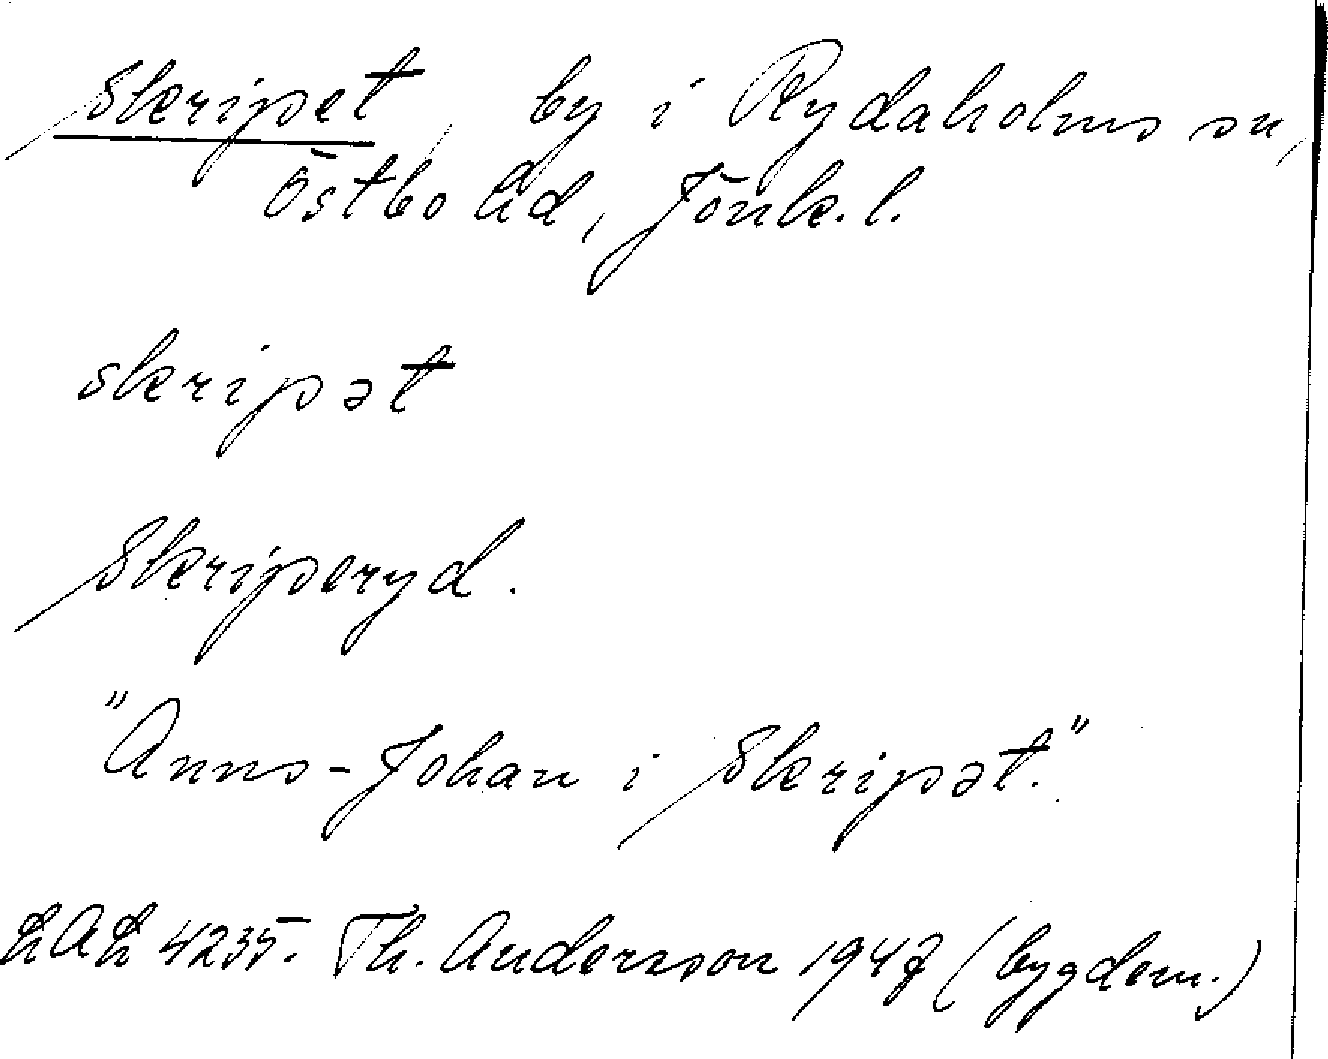 Skripet, by i Rydaholms sn,
Östbo hd, Jönk. l.
skripət
Skriperyd.
"Anns-Johan i Skripət."
LAL 4235. Th. Andersson 1947 (bygdem.)